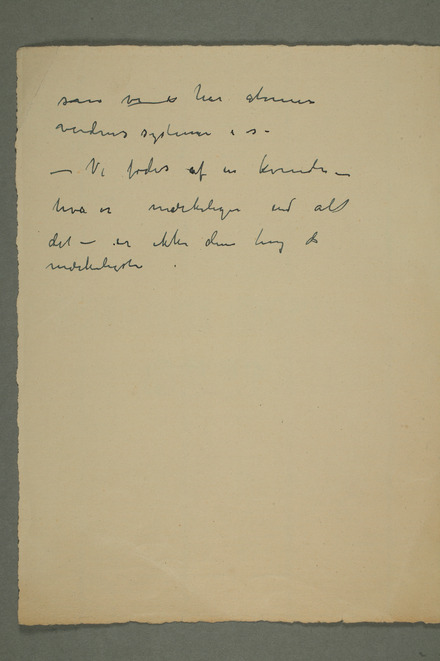 som har atomer
verdens systemer i s-
– Vi fødes af en kvinde –
hva er mærkeliger end alt
det – er ikke denne ting de
mærkeligste .